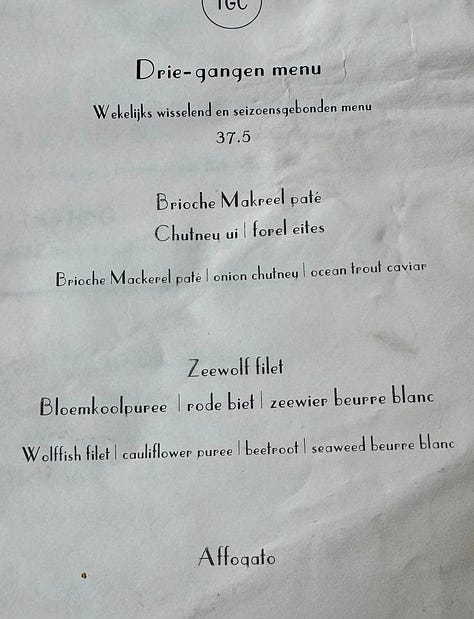 TGC
Drie-gangen menu
Wekelijks wisselend en seizoensgebonden menu
37.5
Brioche Makreel paté
Chutney ui | forel eites
Brioche Mackerel paté | onion chutney | ocean trout caviar
Zeewolf filet
Bloemkoolpuree | rode biet | zeewier beurre blanc
Wolffish filet | cauliflower puree | beetroot | seaweed beurre blanc
Affogato